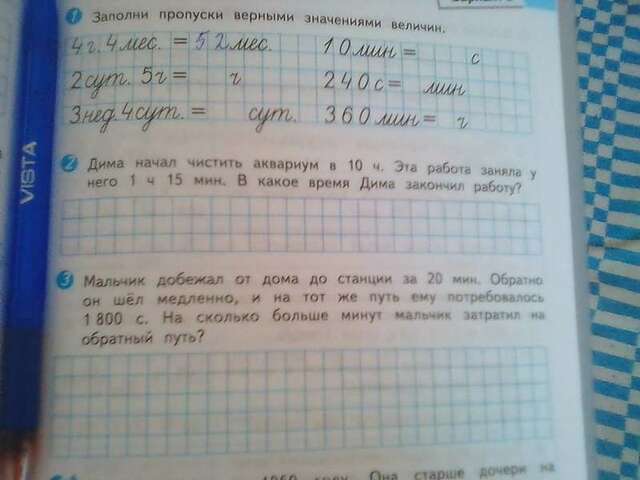 1 Заполни пропуски верными значениями величин.
4 г. 4 мес. = 52 мес. 10 мин = с
2 сут. 5 ч = ч 240 с = мин
3 нед. 4 сут. = сут. 360 мин = ч
VISTA
2 Дима начал чистить аквариум в 10 ч. Эта работа заняла у
него 1 ч 15 мин. В какое время Дима закончил работу?
3 Мальчик добежал от дома до станции за 20 мин. Обратно
он шёл медленно, и на тот же путь ему потребовалось
1 800 с. На сколько больше минут мальчик затратил на
обратный путь?
году. Она старше дочери на